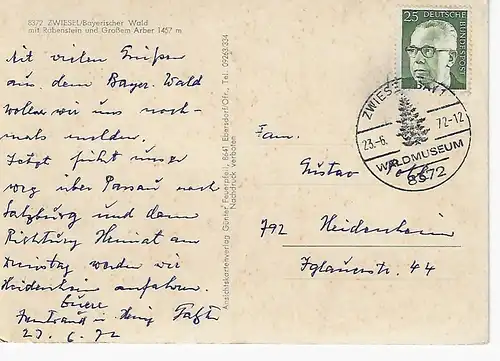 8372 ZWIESEL/Bayerischer Wald
mit Rabenstein und Großem Arber 1457 m
Mit vielen Grüßen
aus dem Bayer. Wald
wollen wir uns noch-
mals melden.
Jetzt führt unser
weg über Passau nach
Salzburg und dann
Richtung Heimat am
Dienstag werden wir
Heidenheim anfahren.
Euere
u.
23. 6. 72
Ansichtskartenverlag Günter Feuerpfeil, 8641 Ebersdorf/Ofr., Tel. 09263/334
Nachdruck verboten
25 DEUTSCHE BUNDESPOST
ZWIESEL BAY 1
23.-6. 72-12
WALDMUSEUM
8372
Fam.
Gustav
792 Heidenheim
Iglauerstr. 44